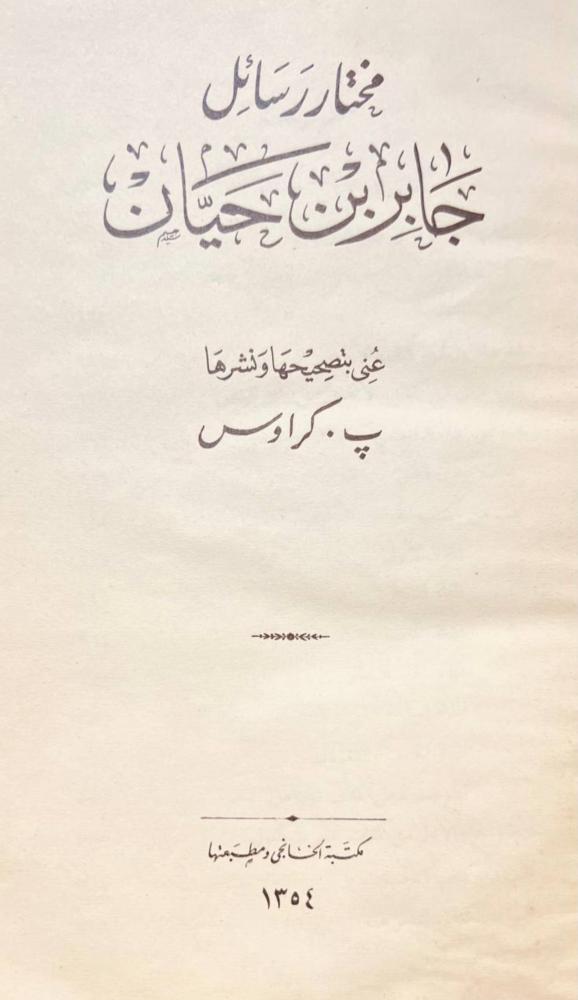 مختار رسائل
جَابِر بْن حَيَّانْ
عُنِى بتصحيْحهَا وَنشرهَا
پ . كراوس
مكتبة الخانجى ومطبعتها
١٣٥٤